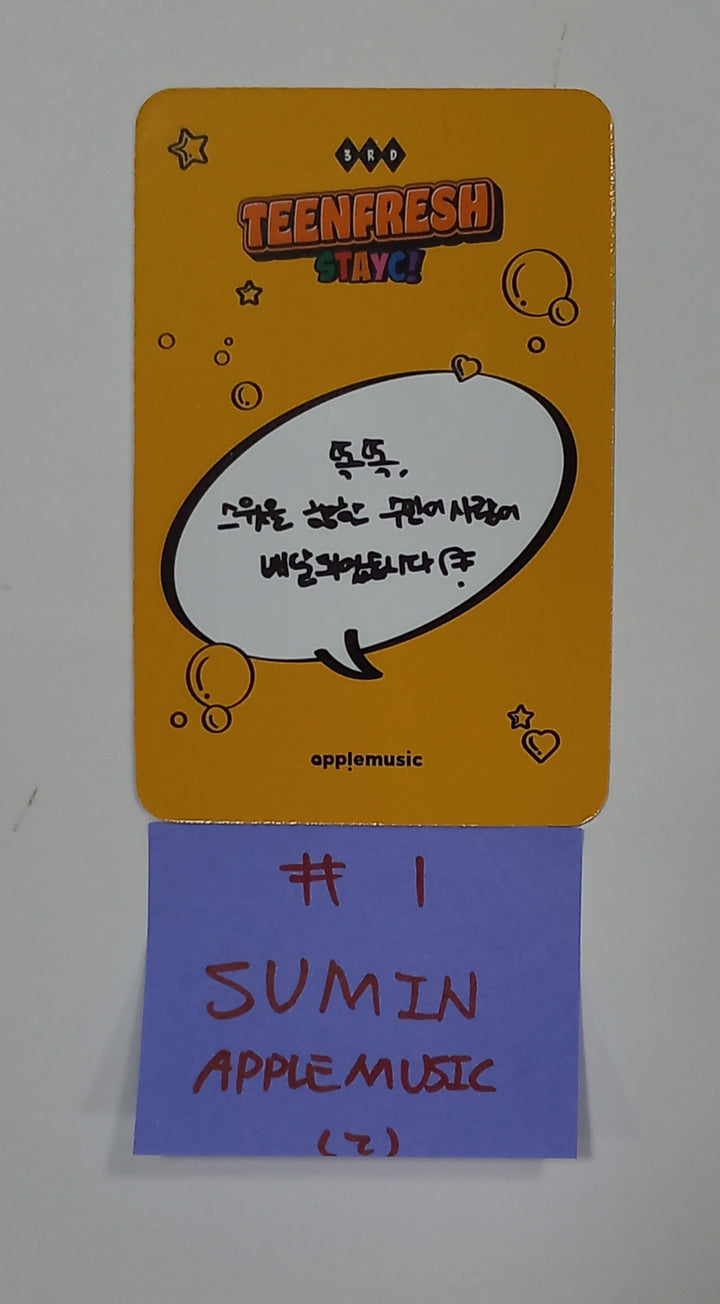 3RD
TEENFRESH
STAYC!
똑똑,
스윗을 향한 수민이 사랑이
배달되었습니다
applemusic
# 1
SUMIN
APPLEMUSIC
(2)